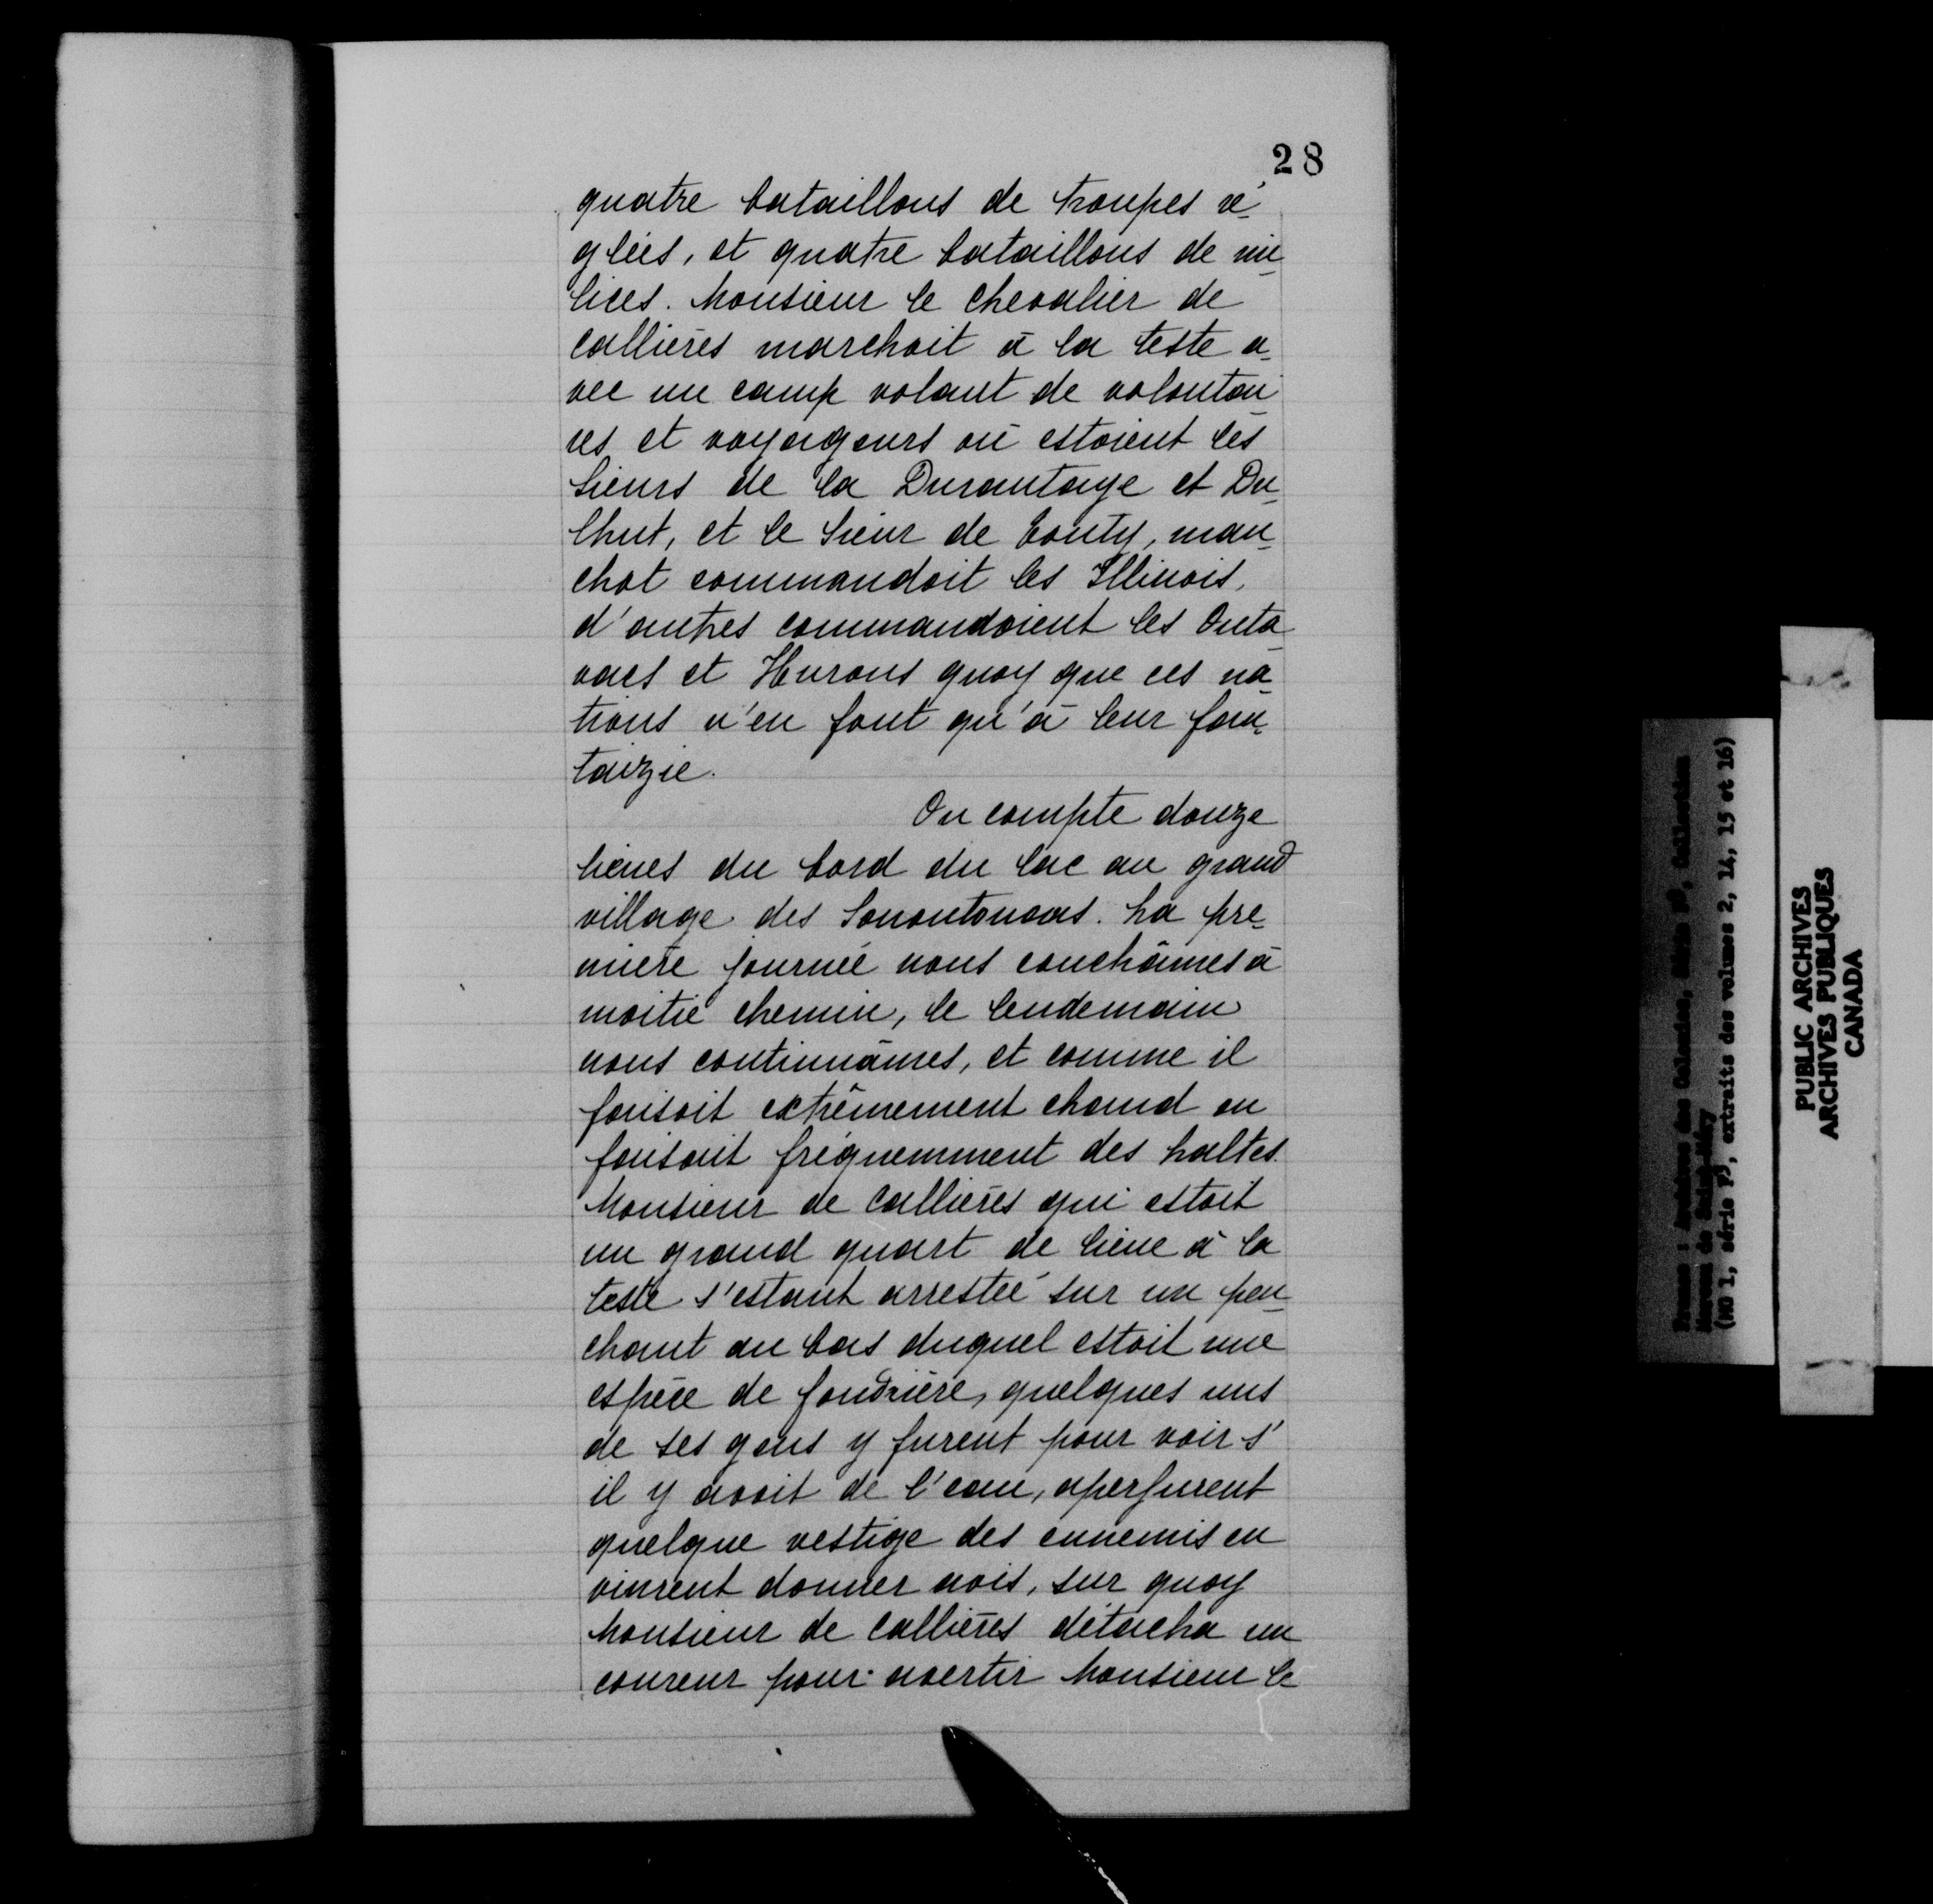 28
quatre bataillons de troupes ré-
glées, et quatre bataillons de mi-
lices. Monsieur le chevalier de
Callières marchoit à la teste a-
vec un camp volant de volontai-
res et voyageurs où estoient les
Sieurs de la Durantaye et Du-
lhut, et le Sieur de Tonty, man-
chot commandoit les Illinois,
d'autres commandoient les Outa-
vacs et Hurons quoy que ces na-
tions n'en font qu'à leur fan-
taizie.
On compte douze
lieues du bord du lac au grand
village des Sonontouans. La pre-
mière journée nous couchâmes à
moitié chemin, le lendemain
nous continuâmes, et comme il
faisoit extrêmement chaud on
faisoit fréquemment des haltes.
Monsieur de Callières qui estoit
un grand quart de lieue à la
teste s'estant arrestée sur un pen-
chant au bas duquel estoit une
espèce de fondrière, quelques uns
de ses gens y furent pour voir s'
il y avoit de l'eau, aperçurent
quelque vestige des ennemis en
vinrent donner avis, sur quoy
Monsieur de Callières détacha un
coureur pour avertir Monsieur le
PUBLIC ARCHIVES
ARCHIVES PUBLIQUES
CANADA
France : Archives des Colonies, Série F3, Collection
Moreau de Saint-Méry
(MG 1, série F3, extraits des volumes 2, 14, 15 et 16)